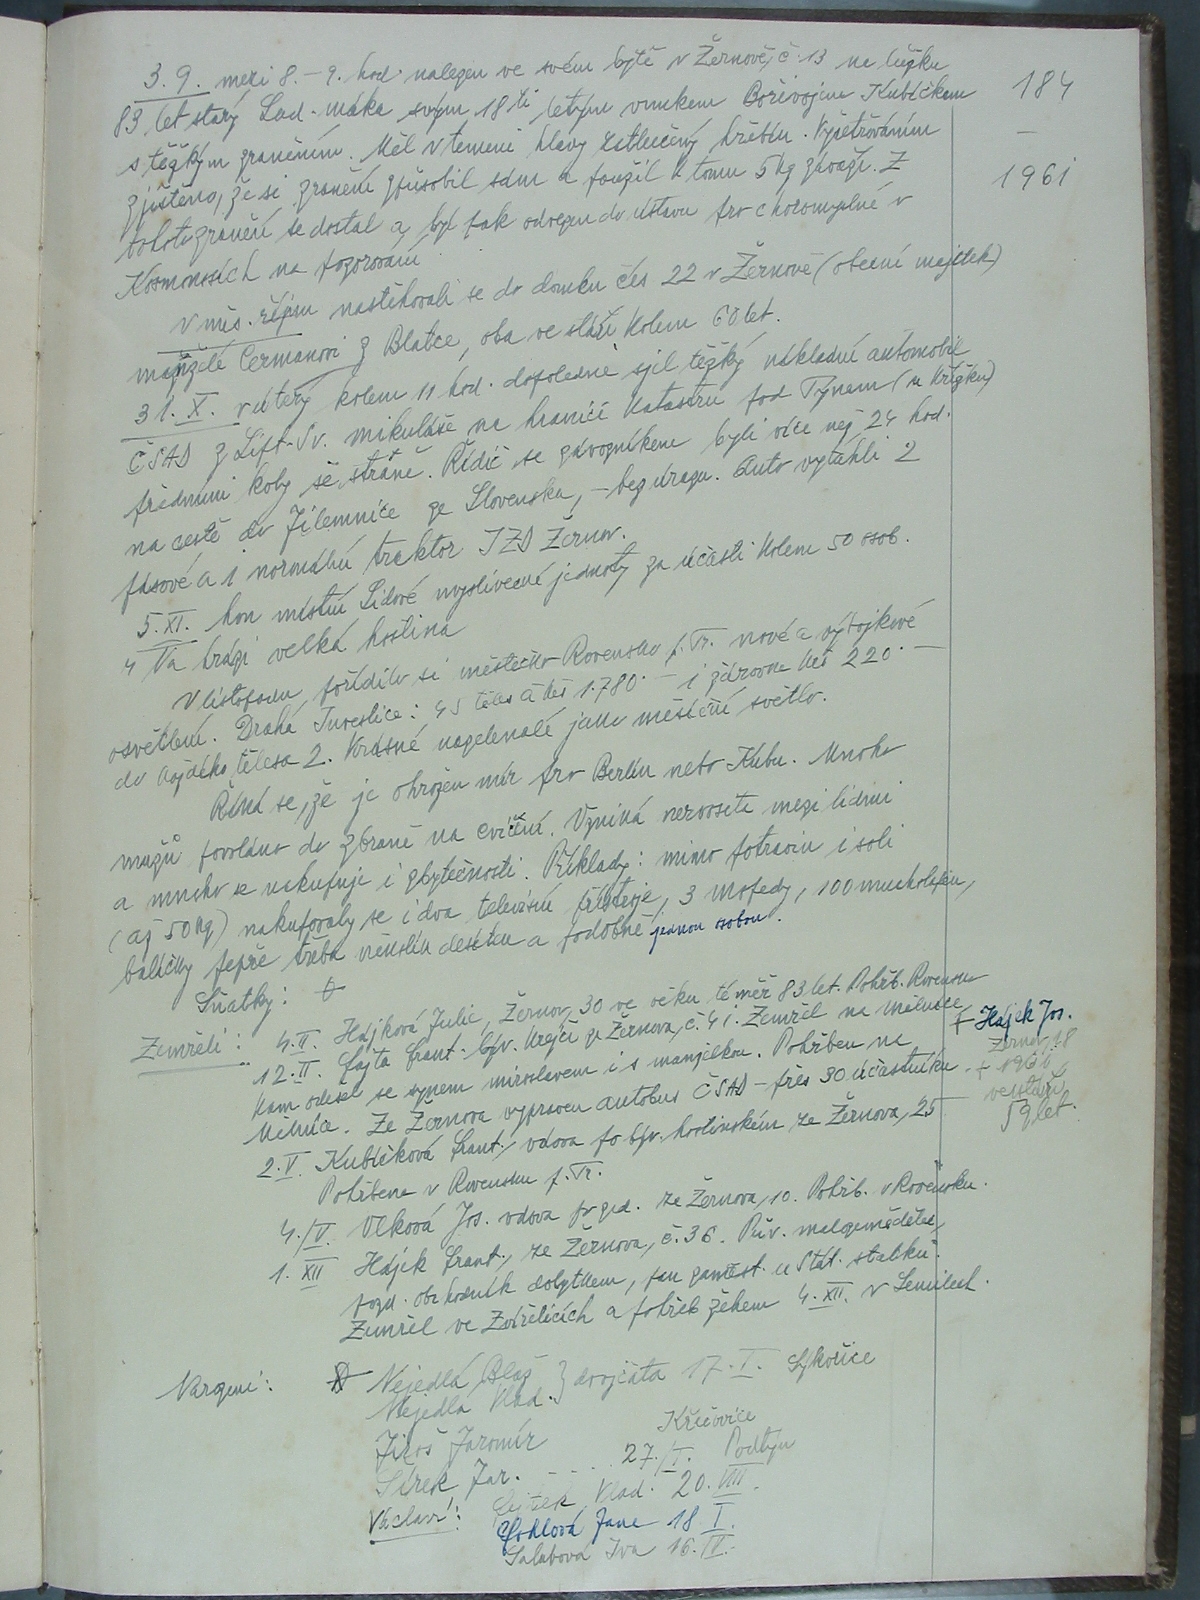 184
—
1961
3.9. mezi 8.–9. hod. nalezen ve svém bytě v Žernově č. 13 na lůžku
83 let starý Lad. svým 18ti letým vnukem Bořivojem Kubíčkem
s těžkým zraněním. Měl v temeni hlavy zatlučený hřebík. Vyšetřováním
zjištěno, že si zranění způsobil sám a použil k tomu 5 kg závaží. Z
tohoto zranění se dostal a byl pak odvezen do ústavu pro choromyslné v
Kosmonosích na pozorování
V měs. říjnu nastěhovali se do domku čís 22 v Žernově (obecní majetek)
manželé Čermanovi z Blatce, oba ve stáří kolem 60 let.
31. X. v úterý kolem 11 hod. dopoledne sjel těžký nákladní automobil
ČSAD z Lipt. Sv. Mikuláše na hranici katastru pod Týnem (u křížku)
předními koly se stráně. Řidič se závozníkem byli více než 24 hod.
na cestě do Jilemnice ze Slovenska, – bez úrazu. Auto vytáhli 2
pásové a 1 normální traktor JZD Žernov.
5. XI. hon místní Lidové myslivecké jednoty za účasti kolem 50 osob.
Na hrázi velká hostina
V listopadu pořídilo si městečko Rovensko p. Tr. nové a výbojkové
osvětlení. Drahá Investice: 45 těles á Kčs 1.780.– i zdrovna Kčs 220.–
do každého tělesa 2. Krásné nazelenalé jako měsíční světlo.
Říká se, že je ohrožen mír pro Berlín nebo Kubu. Mnoho
mužů povoláno do zbraně na cvičení. Vzniká nervosita mezi lidmi
a mnoho se nakupuje i zbytečností. Příklady: mimo potravin i soli
(až 50 kg) nakupovaly se i dva televisní přístroje, 3 mopedy, 100 mucholapek,
balíčky pepře třeba několik desítek a podobně jednou osobou.
Sňatky:
Zemřelí: 4. II. Hájková Julie, Žernov, 30 ve věku téměř 83 let. Pohřb. Rovensko
12. II. Šajta Frant. býv. krejčí ze Žernova, č. 41. Zemřel na Mělníce
kam odešel se synem Miroslavem i s manželkou. Pohřben na
Mělníce. Ze Žernova vypraven autobus ČSAD – přes 30 účastníků.
† Hájek Jos.
Žernov, 18
† 1961
ve stáří
59 let.
2. V. Kubíčková Frant., vdova po býv. hostinském ze Žernova, 25
Pohřbena v Rovensku p. Tr.
4./V. Vlková Jos. vdova ze Žernova, 10. Pohřb. v Rovensku.
1. XII Hájek Frant., ze Žernova, č. 36. Pův. malozemědělec,
pozd. obchodník dobytkem, pak zaměst. u Stát. statků.
Zemřel ve Zvířeticích a pohřeb žehem 4. XII. v Semilech.
Narození: Nejedlá Blaž } dvojčata 17. I. Lykovice
Nejedlá Vlad.
Jiroš Jaromír Křečovice
Šírek Jar. .... 27./I. Podtýn
Václaví: Vlad. 20. VIII.
Jana 18 I.
Salabová Iva 16. IV.